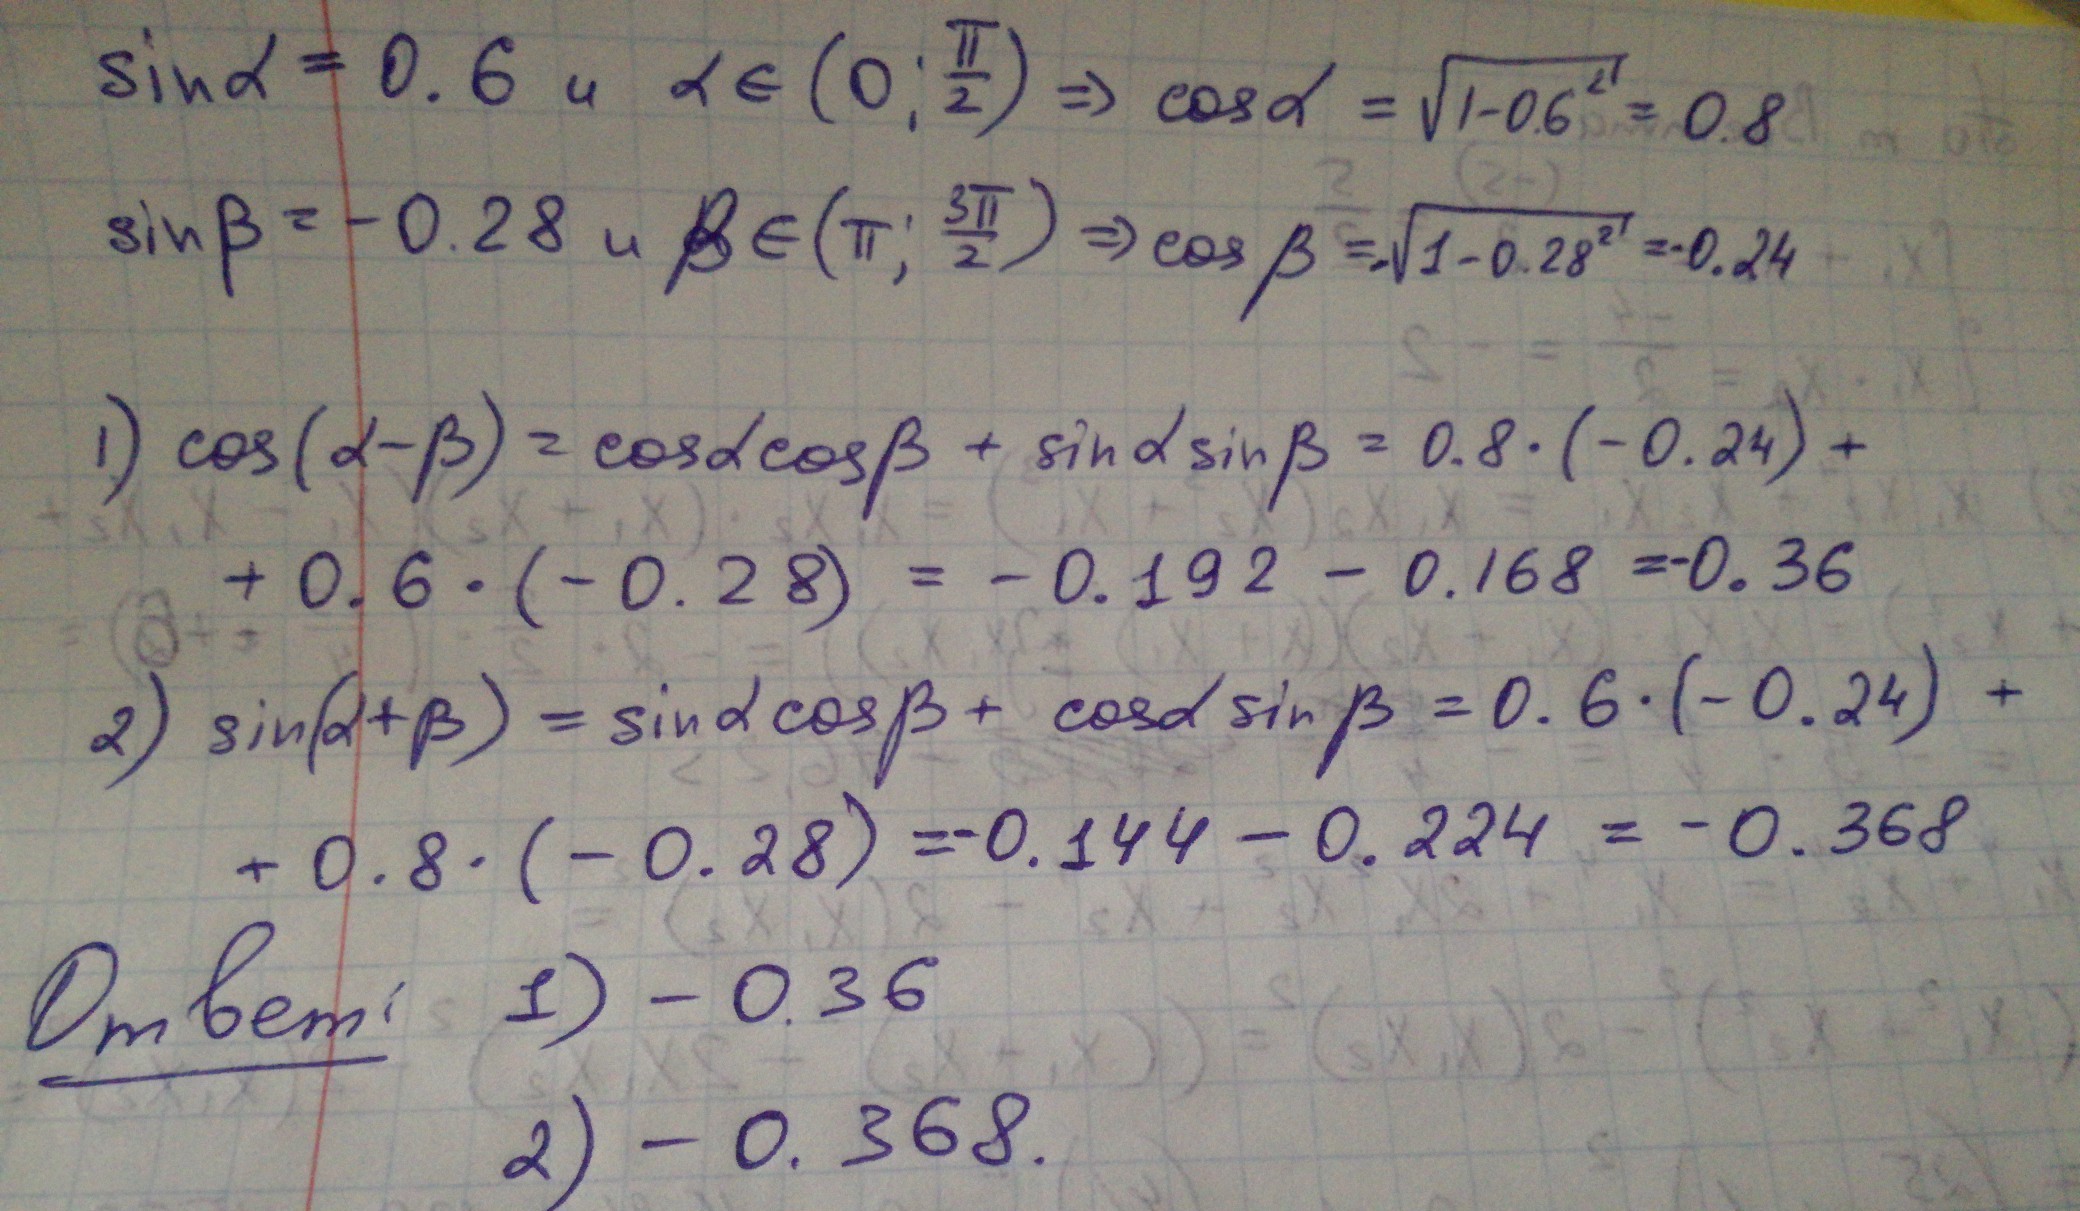 sinα = 0.6 и α∈(0; π/2) ⇒ cosα = √(1-0.6²) = 0.8
sinβ = -0.28 и β∈(π; 3π/2) ⇒ cosβ = -√(1-0.28²) = -0.24
1) cos(α-β) = cosαcosβ + sinαsinβ = 0.8·(-0.24) +
+ 0.6·(-0.28) = -0.192 - 0.168 = -0.36
2) sin(α+β) = sinαcosβ + cosαsinβ = 0.6·(-0.24) +
+ 0.8·(-0.28) = -0.144 - 0.224 = -0.368
Ответ: 1) -0.36
2) -0.368.